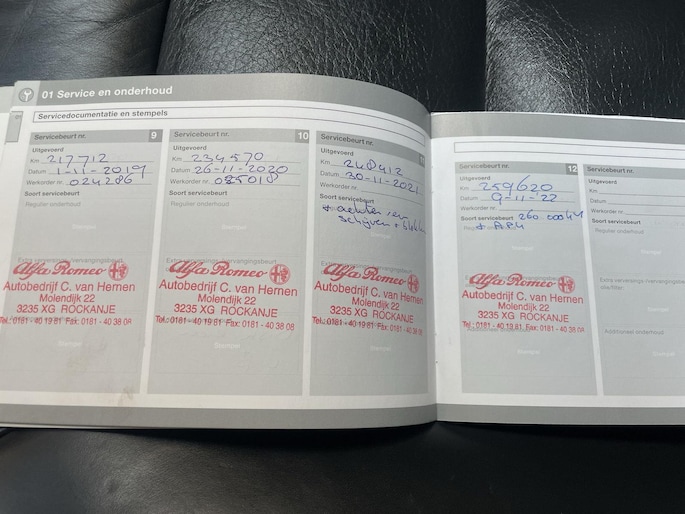 01 Service en onderhoud
Servicedocumentatie en stempels
Servicebeurt nr. 9
Uitgevoerd
Km 217712
Datum 1-11-2019
Werkorder nr. 024286
Soort servicebeurt
Regulier onderhoud
Alfa Romeo
Autobedrijf C. van Hemen
Molendijk 22
3235 XG ROCKANJE
Tel.: 0181 - 40 19 81 Fax: 0181 - 40 38 08
Stempel
Servicebeurt nr. 10
Uitgevoerd
Km 234570
Datum 26-11-2020
Werkorder nr. 025018
Soort servicebeurt
Regulier onderhoud
Alfa Romeo
Autobedrijf C. van Hemen
Molendijk 22
3235 XG ROCKANJE
Tel.: 0181 - 40 19 81 Fax: 0181 - 40 38 08
Stempel
Servicebeurt nr. 11
Uitgevoerd
Km 248412
Datum 30-11-2021
Werkorder nr.
Soort servicebeurt
+ achter
schijven +
Alfa Romeo
Autobedrijf C. van Hemen
Molendijk 22
3235 XG ROCKANJE
Tel.: 0181 - 40 19 81 Fax: 0181 - 40 38 08
Stempel
Servicebeurt nr. 12
Uitgevoerd
Km 259620
Datum 9-11-22
Werkorder nr.
Soort servicebeurt 260 000 km
+ APK
Alfa Romeo
Autobedrijf C. van Hemen
Molendijk 22
3235 XG ROCKANJE
Tel.: 0181 - 40 19 81 Fax: 0181 - 40 38 08
Stempel
Servicebeurt nr.
Uitgevoerd
Km
Datum
Werkorder nr.
Soort servicebeurt
Regulier onderhoud
Additioneel onderhoud
Stempel